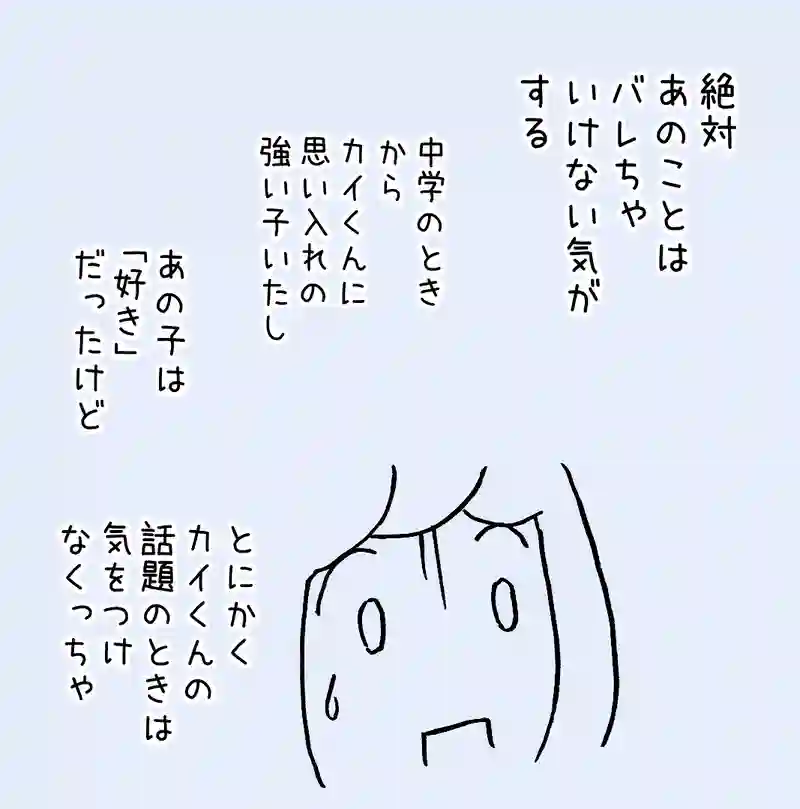 絶対
あのことは
バレちゃ
いけない気が
する
中学のとき
から
カイくんに
思い入れの
強い子いたし
あの子は
「好き」
だったけど
とにかく
カイくんの
話題のときは
気をつけ
なくっちゃ